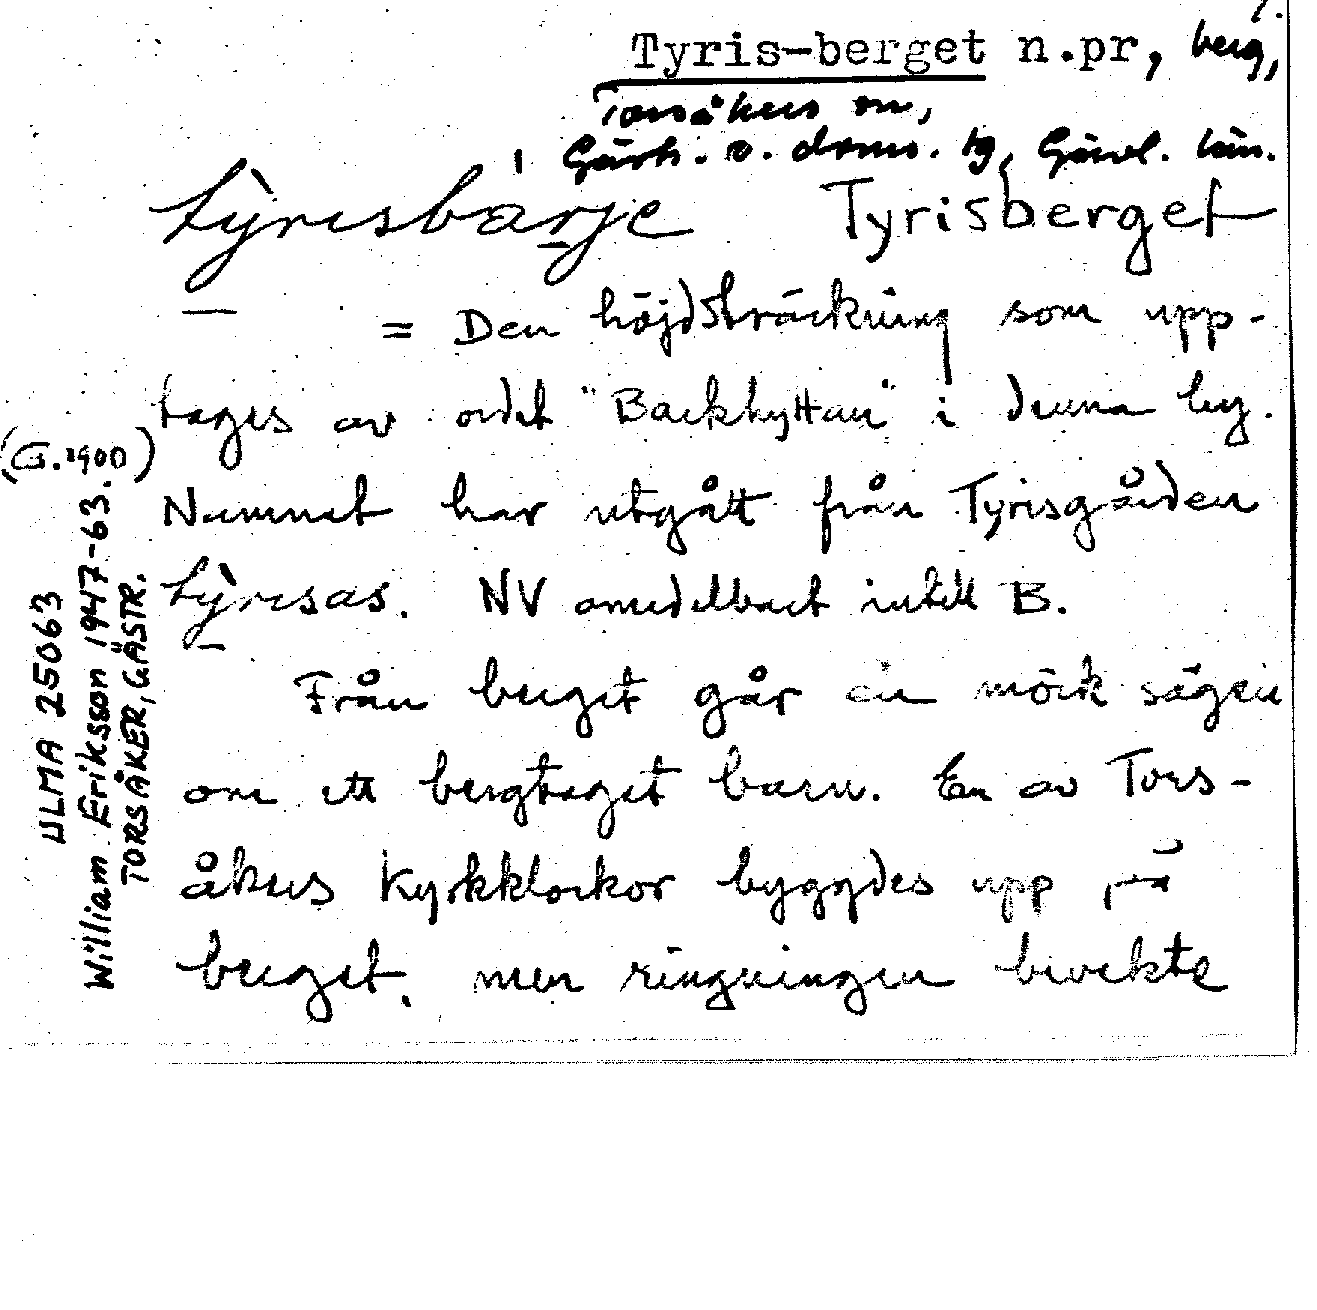 1.
Tyris-berget n.pr, berg,
Torsåkers sn,
Gästr. ö. doms. tg, Gävl. län.
tỳrisbarje Tyrisberget
= Den höjdsträckning som upp-
tages av ordet "Backhyttan" i denna by.
Namnet har utgått från Tyrisgården
tỳrisas. NV omedelbart intill B.
Från berget går en mörk sägen
om ett bergtaget barn. En av Tors-
åkers Kyrkklockor byggdes upp på
berget, men ringningen bevekte
(G. 1900)
ULMA 25063
William Eriksson 1947-63.
TORSÅKER, GÄSTR.